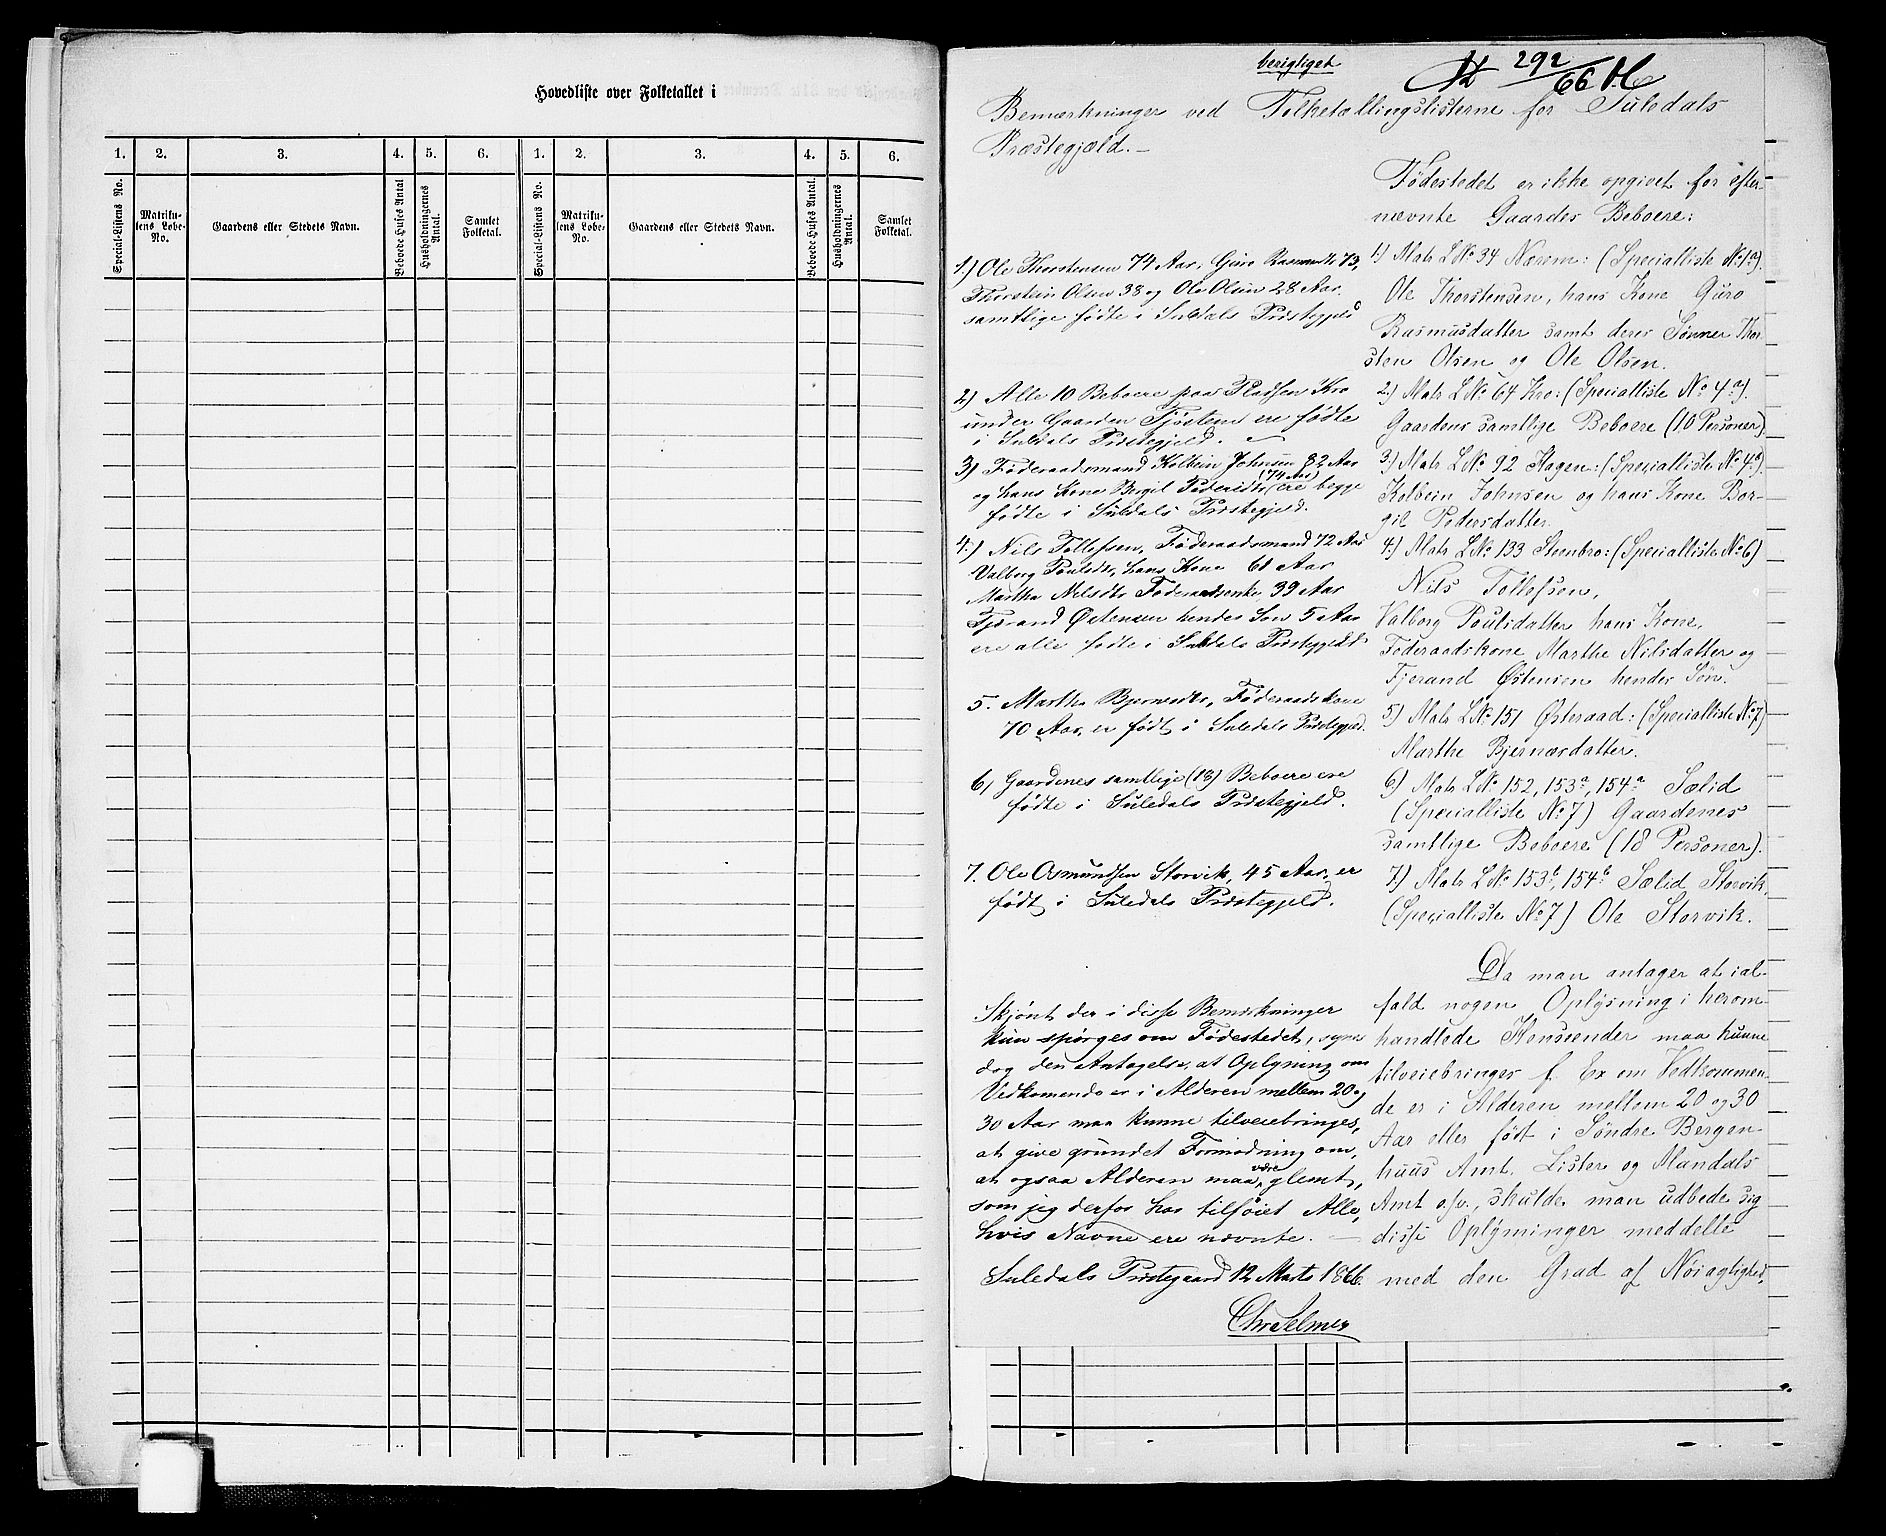 Hovedliste over Folketallet i
1. 2. 3. 4. 5. 6. 1. 2. 3. 4. 5. 6.
Special-Listens No.
Matriku-
lens Løbe-
No.
Gaardens eller Stedets Navn.
Beboede Huses Antal
Husholdningernes
Antal.
Samlet
Folketal.
Special-Listens No.
Matriku-
lens Løbe-
No.
Gaardens eller Stedets Navn.
Beboede Huses Antal.
Husholdningernes
Antal.
Samlet
Folketal.
berigtiget
292/66
Bemærkninger ved Folketællingslisterne for Suledals
Præstegjæld.—
Fødestedet er ikke opgivet for efter-
nævnte Gaardes Beboere:
1) Matr L No 34 Nærem: (Specialliste No 1a).
Ole Thorstensen, hans Kone Guro
Rasmusdatter samt deres Sønner Thor-
sten Olsen og Ole Olsen.
2) Matr L No 64 Kro: (Specialliste No 4a).
Gaardens samtlige Beboere (10 Personer).
3) Matr L No 92 Hagen: (Specialliste No 4b).
Kolbein Johnsen og hans Kone Bor-
gil Pedersdatter.
4) Matr L No 133 Steenbro: (Specialliste No 6)
Nils Tollefsen,
Valborg Poulsdatter hans Kone,
Føderaadskone Marthe Nilsdatter og
Fjerand Østensen hendes Søn.
5) Matr L No 151 Østeraad: (Specialliste No 7)
Marthe Bjernærdatter.
6) Matr L No 152, 153a, 154a Sælid
(Specialliste No 7) Gaardenes
samtlige Beboere (18 Personer).
7) Matr L No 153b, 154b Sælid Storvik,
(Specialliste No 7) Ole Storvik.
Da man antager at ial-
fald nogen Oplysning i herom-
handlede Henseender maa kunne
tilveiebringes f. Ex om Vedkommen-
de er i Alderen mellem 20 og 30
Aar eller født i Søndre Bergen-
huus Amt, Lister og Mandals
Amt o.s.v., skulde man udbede sig
disse Oplysninger meddelte
med den Grad af Nøiagtighed,
1) Ole Thorstensen 74 Aar, Guro Rasmusdtr 73,
Thorstein Olsen 38 og Ole Olsen 28 Aar.
samtlige fødte i Suldals Præstegjeld
2) Alle 10 Beboere paa Pladsen Kro
under Gaarden ere fødte
i Suldals Præstegjeld.
3) Føderaadsmand Kolbein Johnsen 82 Aar
og hans Kone Borgil Pedersdtr (74 Aar) ere begge
fødte i Suledals Præstegjeld.
4) Nils Tollefsen, Føderaadsmand 72 Aar
Valborg Poulsdtr, hans Kone 61 Aar
Martha Nelsdtr Føderaadsenke 39 Aar
Fjerand Østensen hendes Søn 5 Aar
ere alle fødte i Suldals Præstegjeld
5. Martha Bjernedtr, Føderaadskone
70 Aar, er født i Suledals Præstegjeld.
6) Gaardenes samtlige (18) Beboere ere
fødte i Suledals Præstegjeld.
7. Ole Osmundsen Storvik, 45 Aar, er
født i Suledals Præstegjeld.
Skjønt der i disse Bemærkninger
kun spørges om Fødestedet, synes
dog den Antagelse, at Oplysning om
Vedkomende er i Alderen mellem 20 og
30 Aar maa kunne tilveiebringes,
at give grundet Formodning om,
at ogsaa Alderen maa være glemt,
som jeg derfor har tilføiet Alle,
hvis Navne ere nævnte.
Suledals Præstegaard 12 Marts 1866.
Chr Selmer